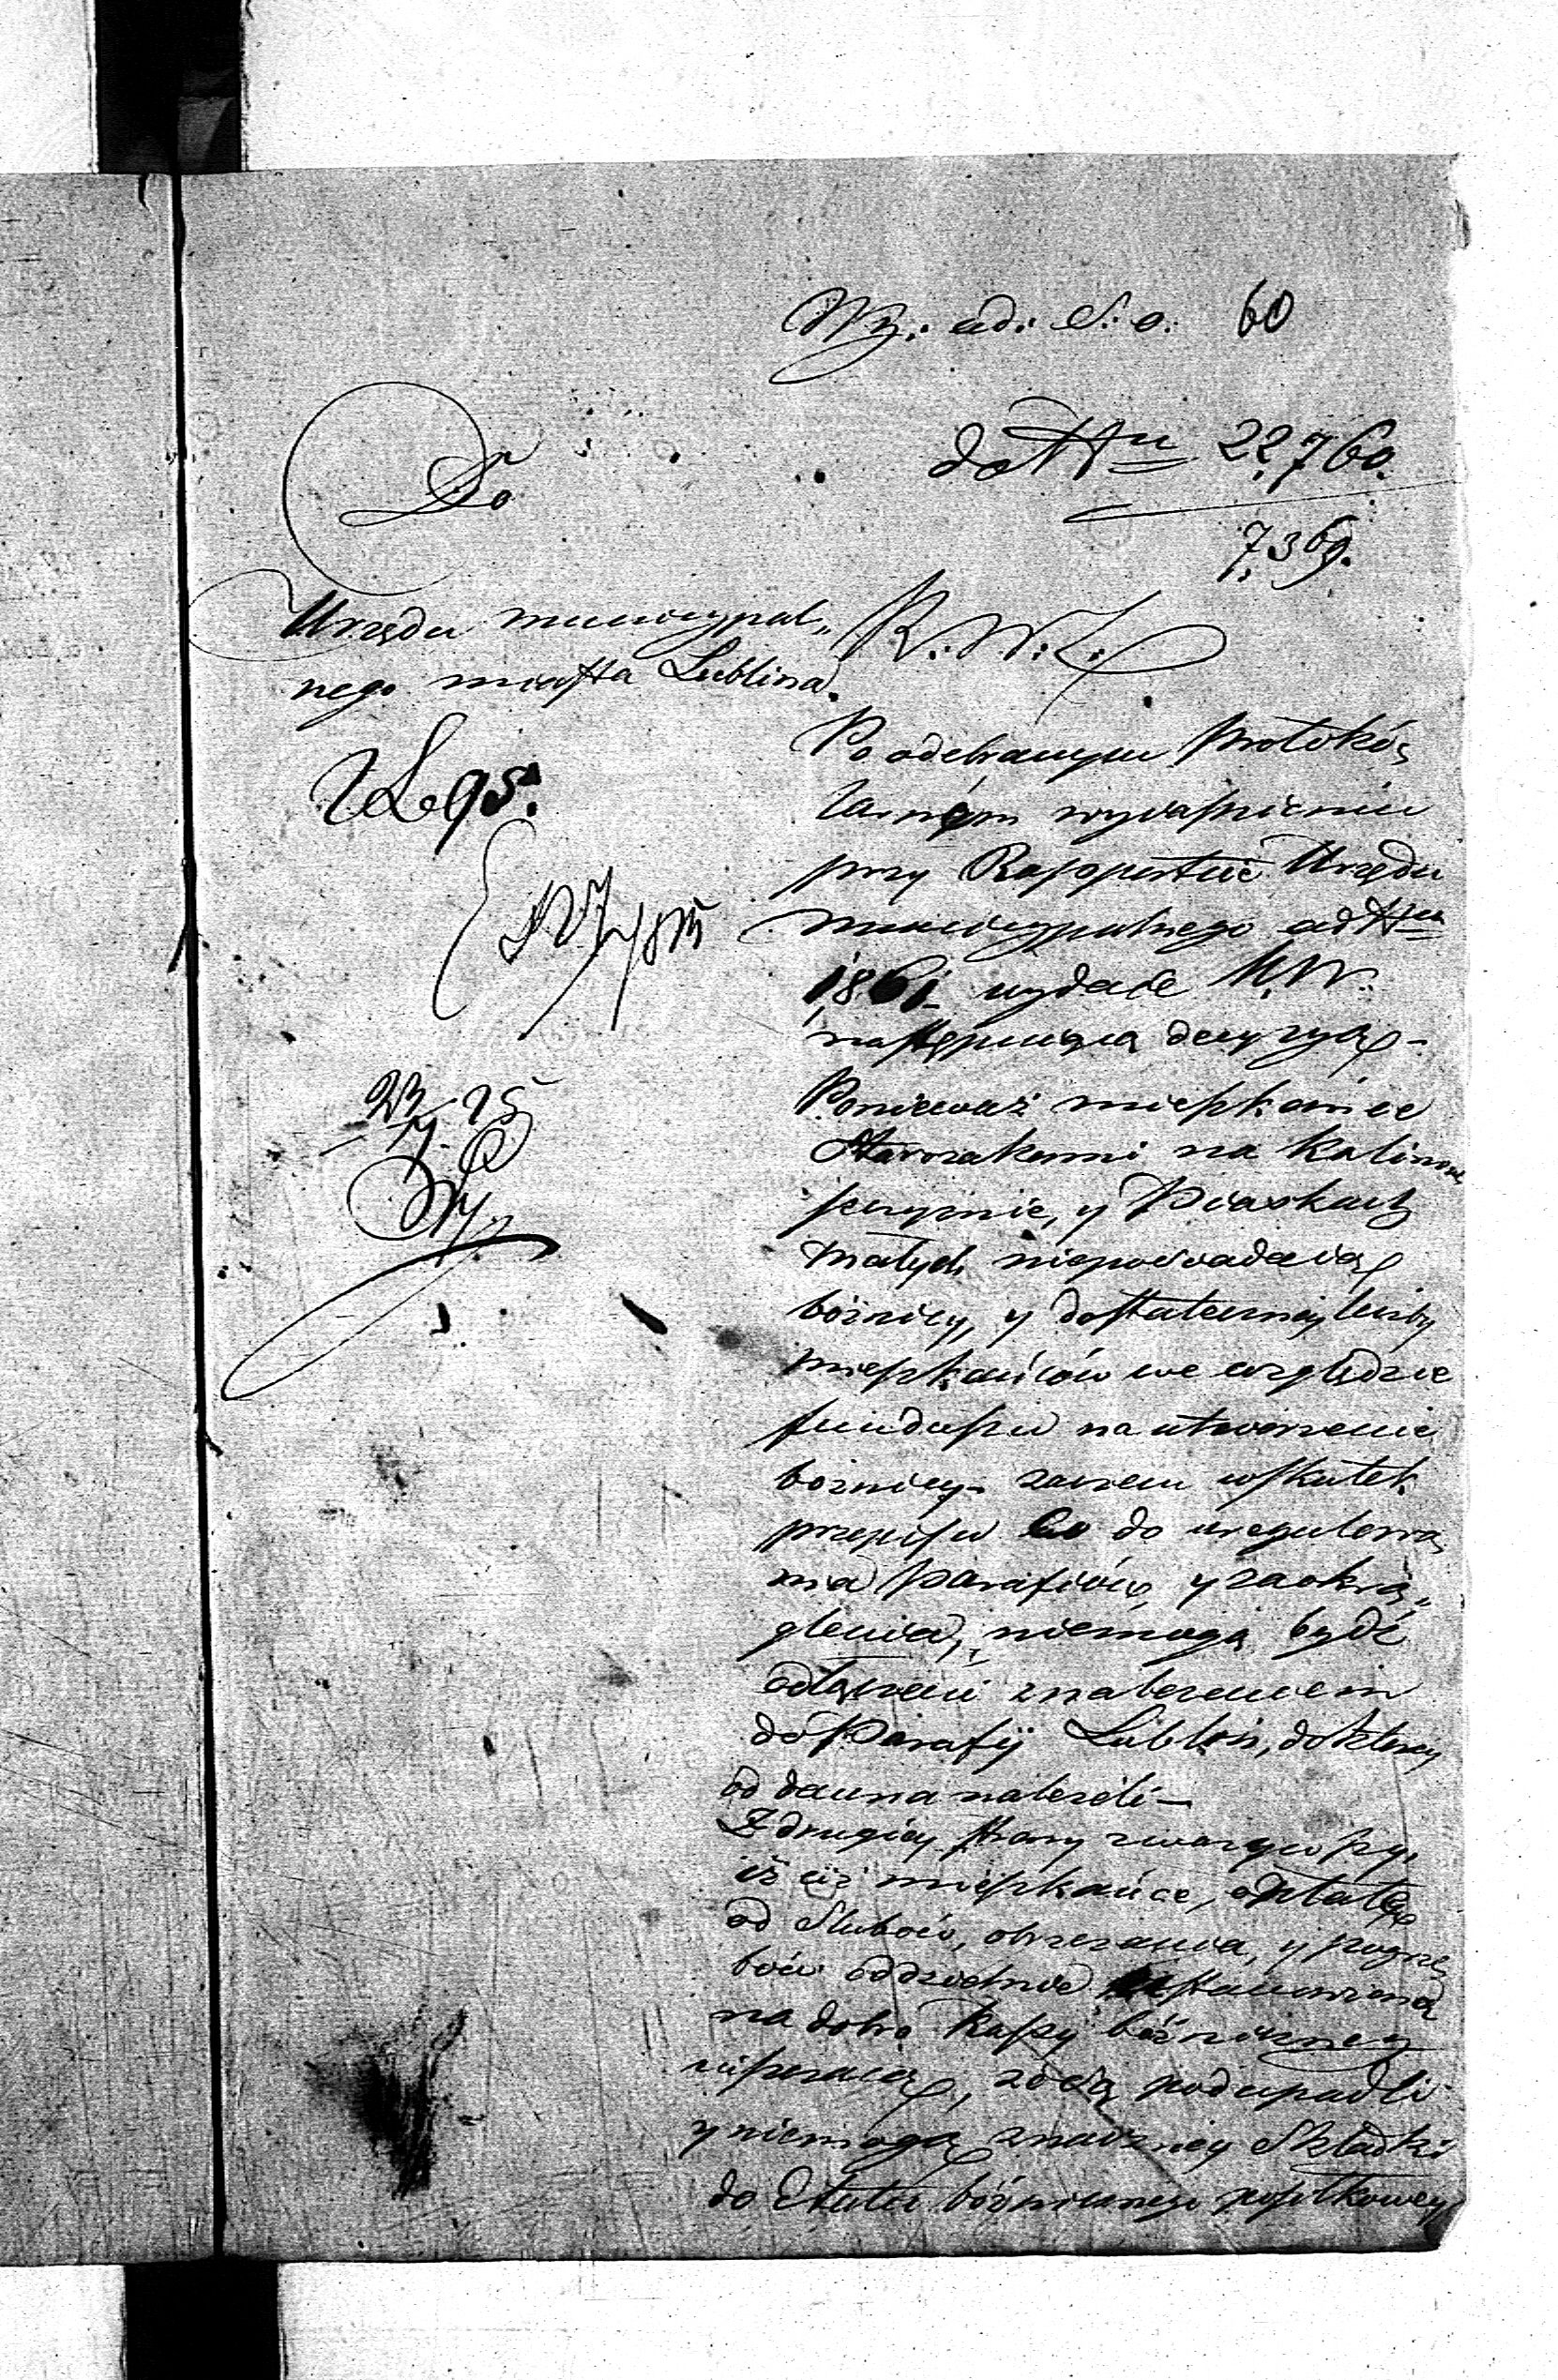 Wy: ad. S: o. 60
do Nru 22,760.
7,369.
Do
Urzędu municypal„
nego miasta Lublina.
R. W. L.
Po odebranym Protokó„
larnym wyiaśnieniu
przy Rapportcie Urzędu
municypalnego ad Nrum
1861 wydaie K. W.
następuiącą decyzyą –
Ponieważ mieszkańce
Starozakonni na Kalinow
szczyznie, y Piaskach
małych nieposiadaią
bóżnicy, y dostateczney liczby
mieszkańców we względzie
funduszu na utworzenie
bóżnicy – zaczem wskutek
przepisu co do uregulowa„
nia Parafiów, y zaokrą„
glenia, niemogą bydź
odłączeni z należeniem
do Parafij Lublin, do którey
od dawna należeli –
Z drugiey strony zważywszy,
iż ciż mieszkańce, opłatę
od Slubów, obrzezania, y pogrze„
bów oddzielnie ustanowioną
na dobro Kassy bóżniczney
uiszczaią, zaś są podupadli
y niemogą znaczney Składki
do Etatu bóżnicznego posiłkowey